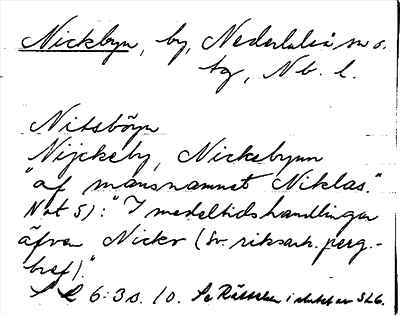 Nickbyn, by, Nederluleå sn o.
tg, Nb. l.
Nitsbÿn
Nijckeby, Nickebynn
"af mansnamnet Niklas."
Not 5): "I medeltidshandlingar
äfven Nickr (Sv. riksark. perg.-
bref)."
S L 6:3 s. 10. Se Rättelser i slutet av SL6.